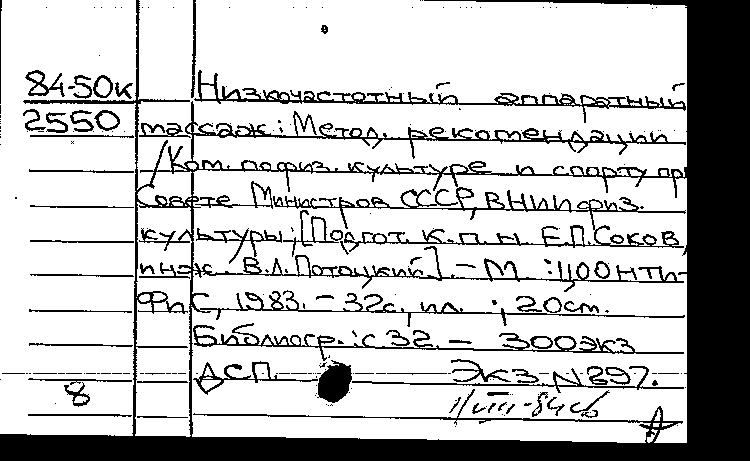 84-50к Низкочастотный аппаратный
2550 массаж: Метод. рекомендации
/Ком. по физ. культуре и спорту пр
Совете Министров СССР, ВНИИ физ.
культуры; [Подгот. к.п.н. Е.П.Соков,
инж. В.Л. Потоцкий]. - М. : ЦООНТИ-
ФиС, 1983. - 32с., ил. ; 20см.
Библиогр.: с 32. - 300экз
ДСП. Экз N 297.
8